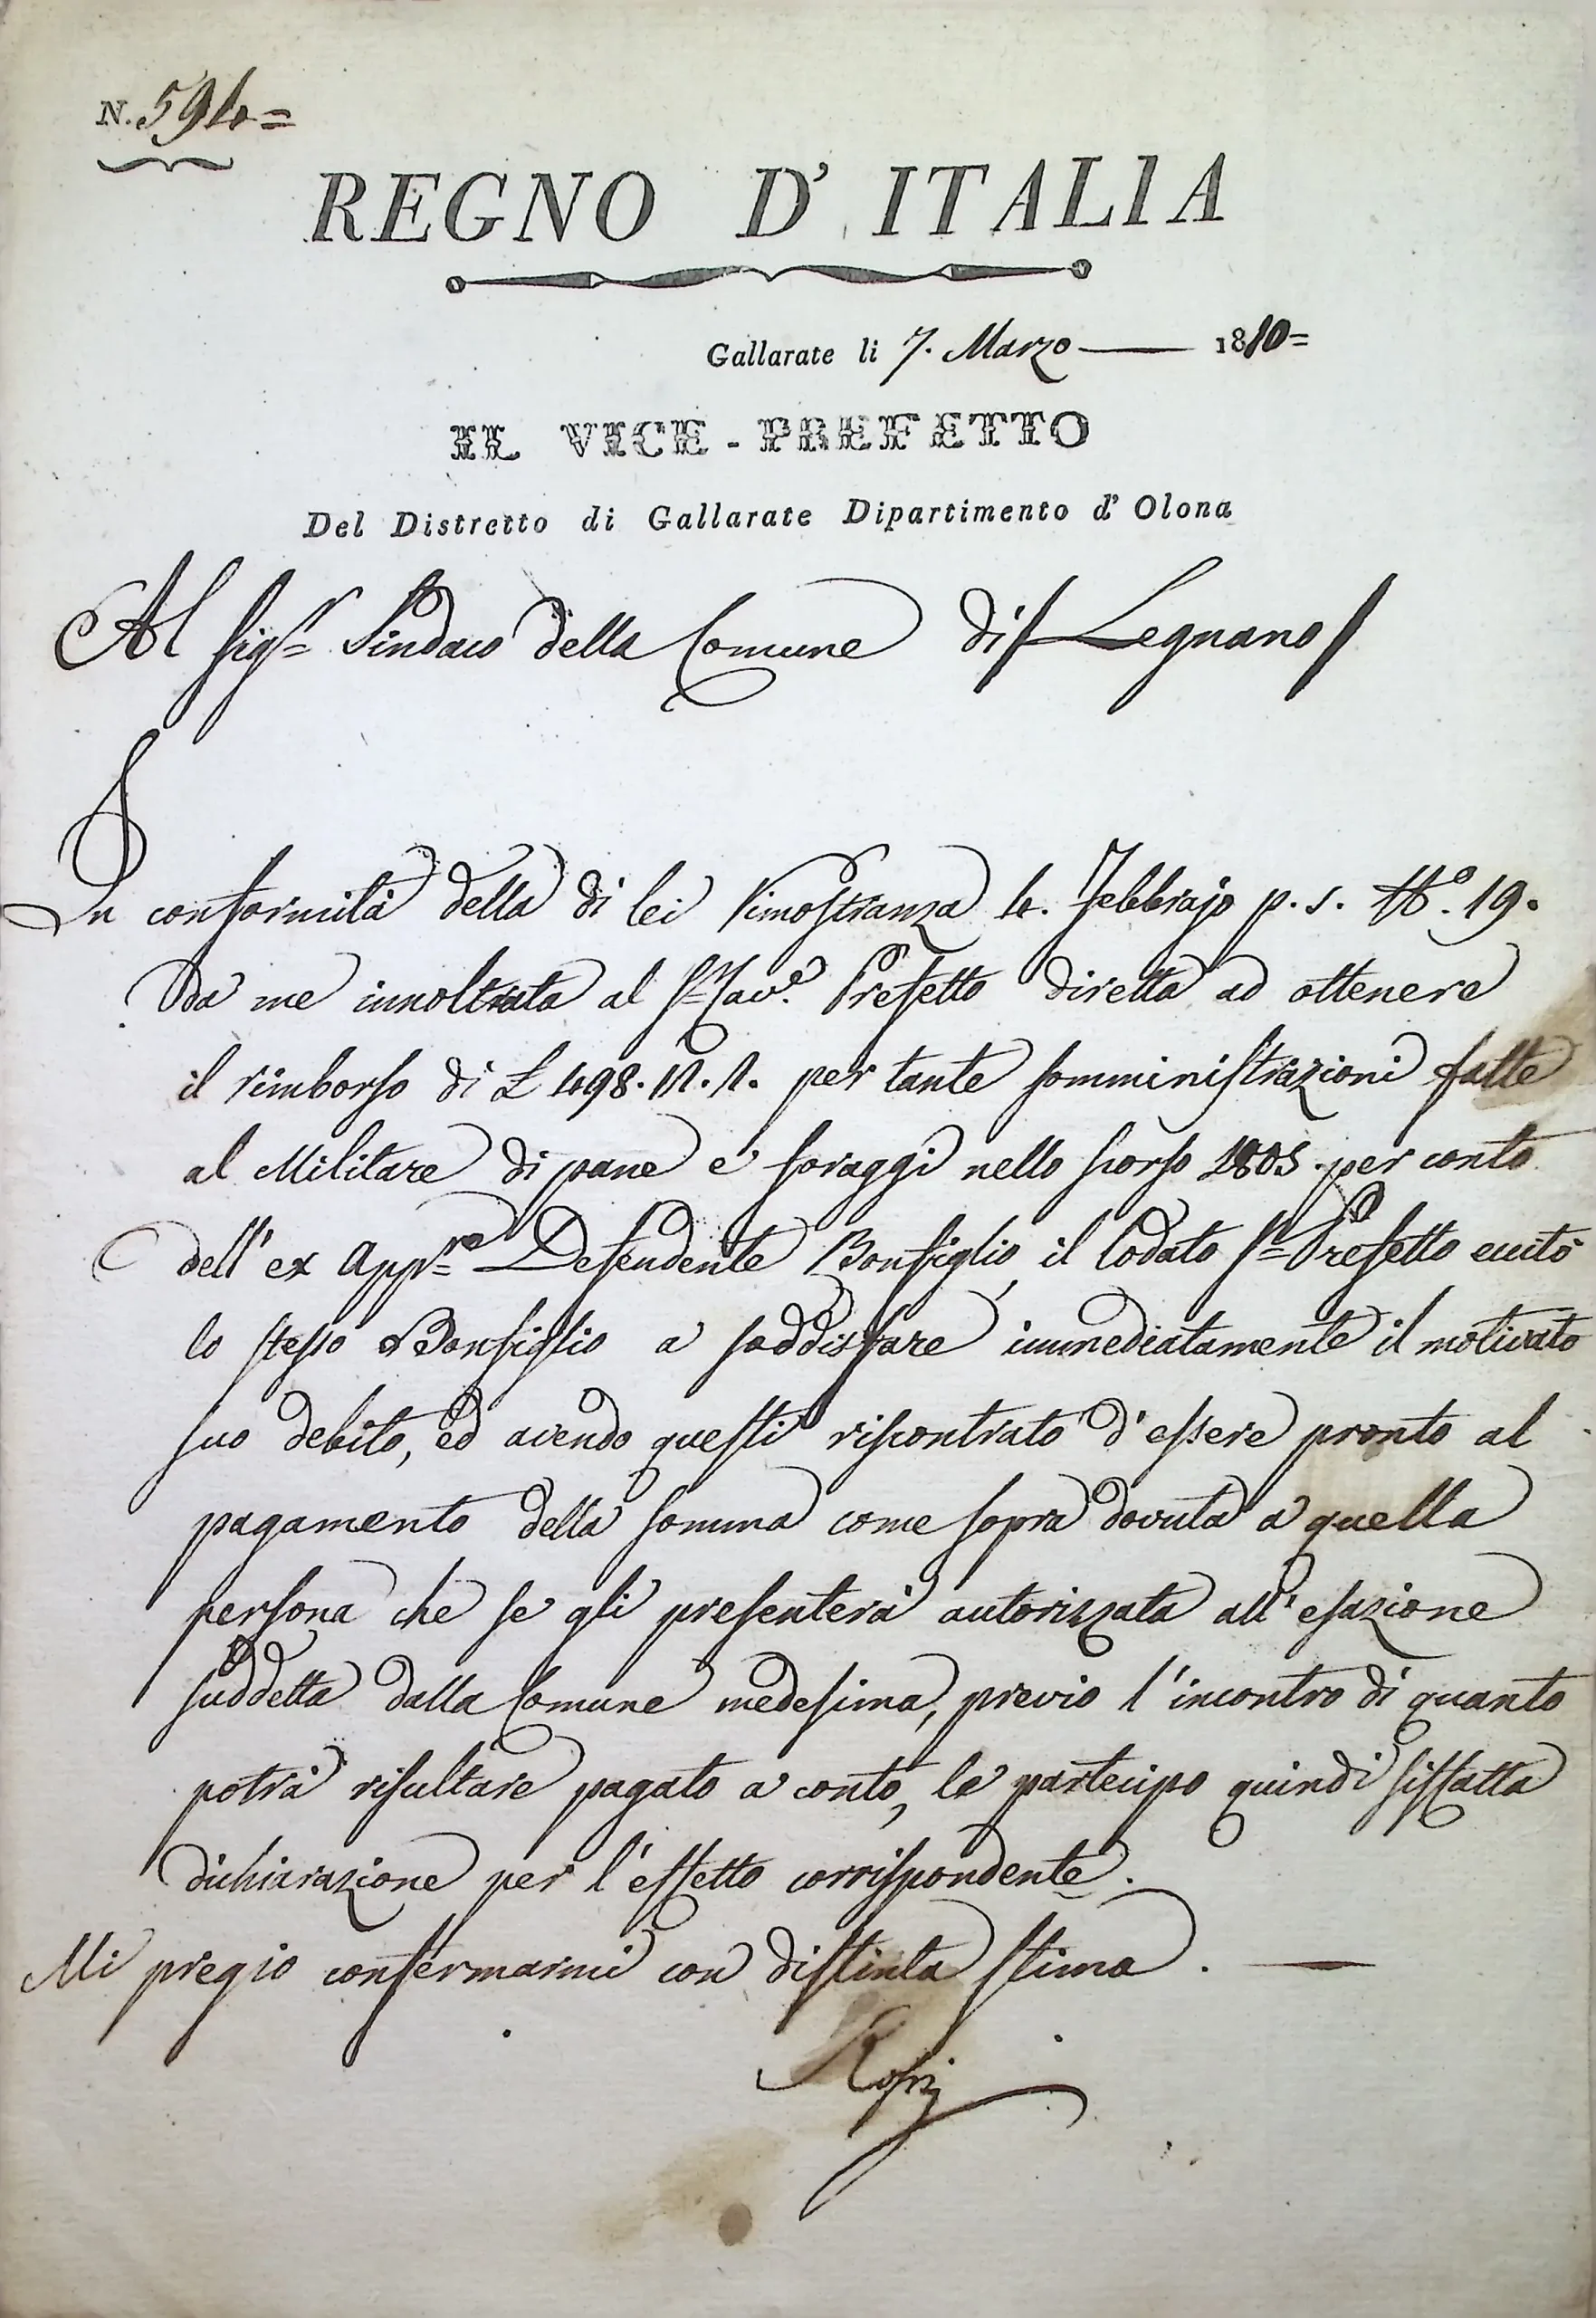 N. 594=
REGNO D' ITALIA
Gallarate li 7. Marzo — 1810=
IL VICE-PREFETTO
Del Distretto di Gallarate Dipartimento d' Olona
Al Sigr. Sindaco della Comune di Legnano
In conformità della di lei rimostranza 4. Febbrajo p. s. N.o 19.
da me innoltrata al Sr. Cav.e Prefetto diretta ad ottenere
il rimborso di £ 498. per tante somministrazioni fatte
al Militare di pane e foraggi nello scorso 1805. per conto
dell' ex App.re Defendente Bonfiglio, il lodato Sr. Prefetto eccitò
lo stesso Bonfiglio a soddisfare immediatamente il motivato
suo debito, ed avendo questi riscontrato d' essere pronto al
pagamento della somma come sopra dovuta a quella
persona che se gli presenterà autorizzata all' esazione
suddetta dalla Comune medesima, previo l' incontro di quanto
potrà risultare pagato a conto, le partecipo quindi siffatta
dichiarazione per l' effetto corrispondente.
Mi pregio confermarmi con distinta stima. —